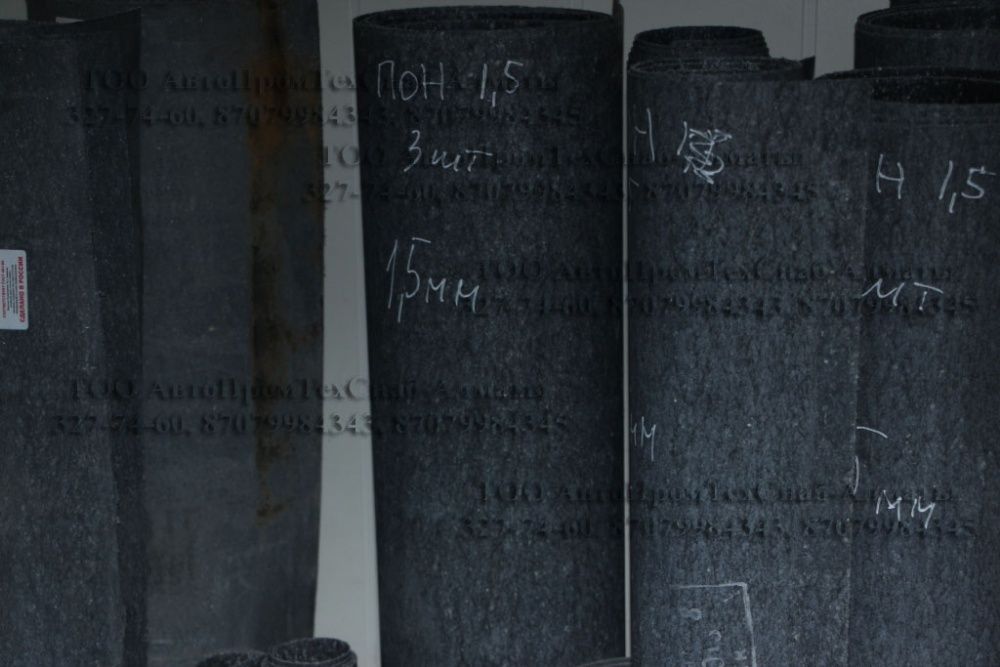 ПОН 1,5
3 шт
1,5 мм
Н 1,5
мт
мм
Н
мм
СДЕЛАНО В РОССИИ
ТОО АвтоПромТехСнаб-Алматы
327-74-60, 87079984343, 87079984345
ТОО АвтоПромТехСнаб-Алматы
327-74-60, 87079984343, 87079984345
ТОО АвтоПромТехСнаб-Алматы
327-74-60, 87079984343, 87079984345
ТОО АвтоПромТехСнаб-Алматы
327-74-60, 87079984343, 87079984345
ТОО АвтоПромТехСнаб-Алматы
327-74-60, 87079984343, 87079984345